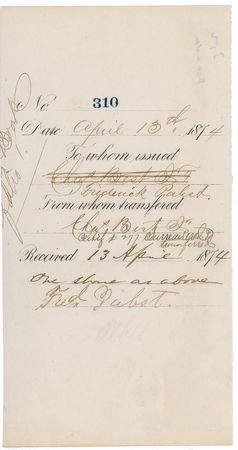 No 310
Date April 13th 1874
To whom issued
Chas Best Jr
Frederick Pabst.
From whom transferred
Chas Best Jr
Certif # 277 Surrendered
Received 13 April 1874
One share as above
Fred Pabst.